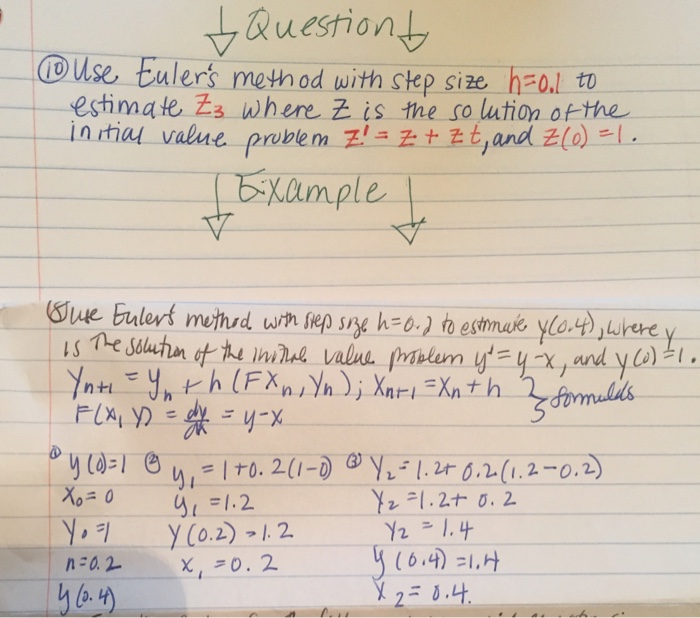 Question
⑩ Use Euler's method with step size h=0.1 to
estimate Z₃ where Z is the solution of the
initial value problem Z' = Z + Zt, and Z(0) = 1.
Example
⑧ use Euler's method with step size h=0.2 to estimate y(0.4), where y
is The solution of the initial value problem y' = y-x, and y(0)=1.
Yₙ₊₁ = Yₙ + h (F Xₙ, Yₙ); Xₙ₊₁ = Xₙ + h } formulas
F(X, Y) = dy/dx = y-x
① y(0)=1 ② y₁ = 1+0.2(1-0) ③ Y₂ = 1.2+ 0.2(1.2-0.2)
X₀ = 0 y₁ = 1.2 Y₂ = 1.2+ 0.2
Y₀ = 1 Y(0.2) = 1.2 Y₂ = 1.4
n=0.2 x₁ = 0.2 y(0.4) = 1.4
y(0.4) X₂ = 0.4.